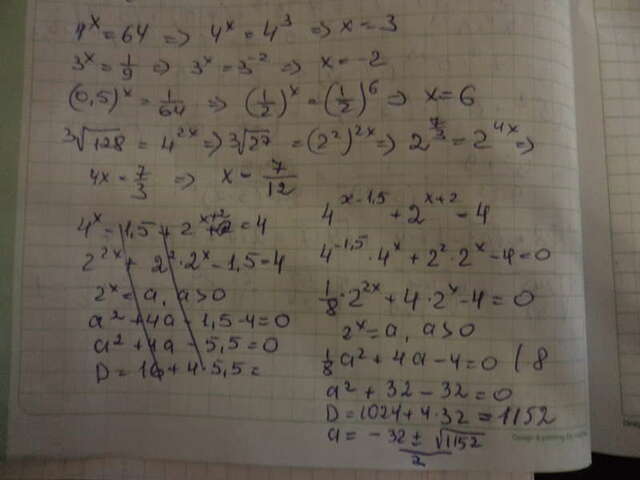 4^x = 64 => 4^x = 4^3 => x = 3
3^x = 1/9 => 3^x = 3^-2 => x = -2
(0,5)^x = 1/64 => (1/2)^x = (1/2)^6 => x = 6
∛128 = 4^2x => ∛2^7 = (2^2)^2x => 2^7/3 = 2^4x =>
4x = 7/3 => x = 7/12
4^x - 1,5 + 2^x+2 = 4
2^2x + 2^2·2^x - 1,5 = 4
2^x = a, a > 0
a^2 + 4a - 1,5 - 4 = 0
a^2 + 4a - 5,5 = 0
D = 16 + 4·5,5 =
4^x-1,5 + 2^x+2 = 4
4^-1,5 · 4^x + 2^2 · 2^x - 4 = 0
1/8 · 2^2x + 4·2^x - 4 = 0
2^x = a, a > 0
1/8 a^2 + 4a - 4 = 0 | 8
a^2 + 32 - 32 = 0
D = 1024 + 4·32 = 1152
a = -32 ± √1152 / 2